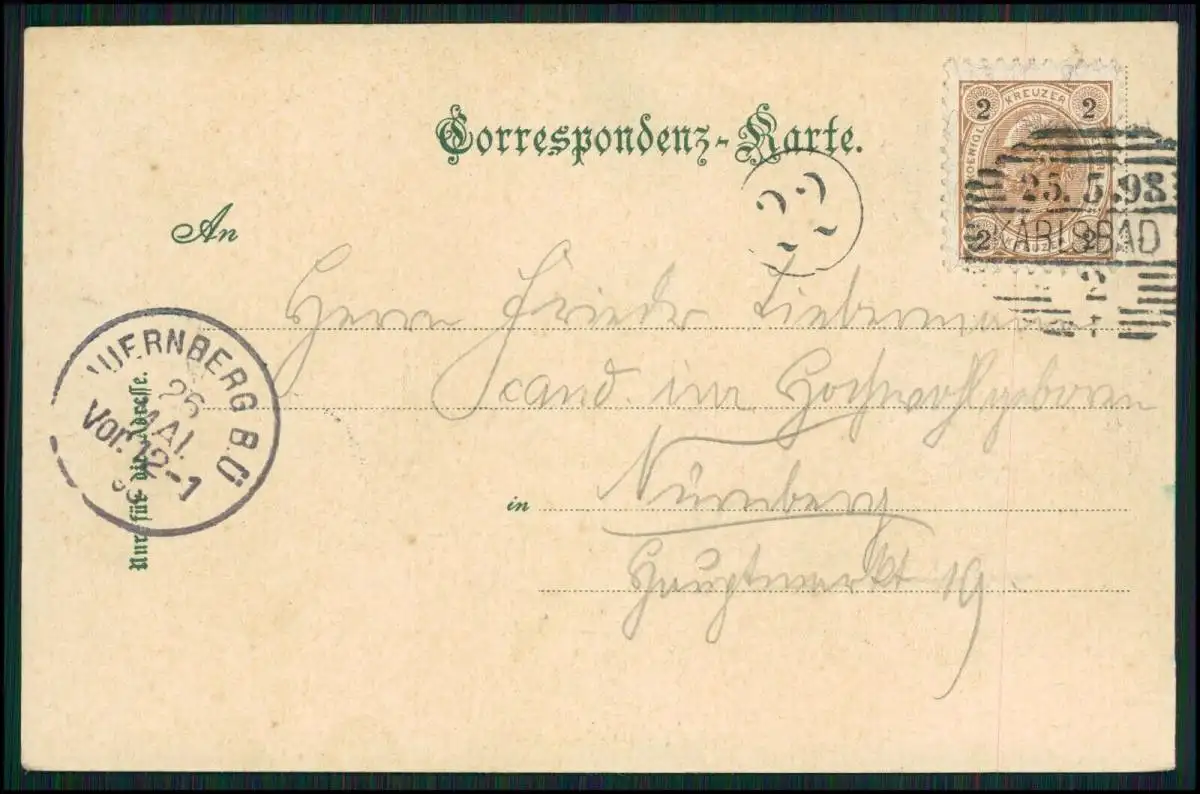 Correspondenz-Karte.
2 KREUZER 2
2 2
25.5.98
KARLSBAD
An
22
Herrn Friedr Liebermann
cand. jur Hochwohlgeboren
in Nürnberg
Hauptmarkt 19.
NUERNBERG B.Ü
26
MAI.
Vor.12-1
98
Nur für die Adresse.